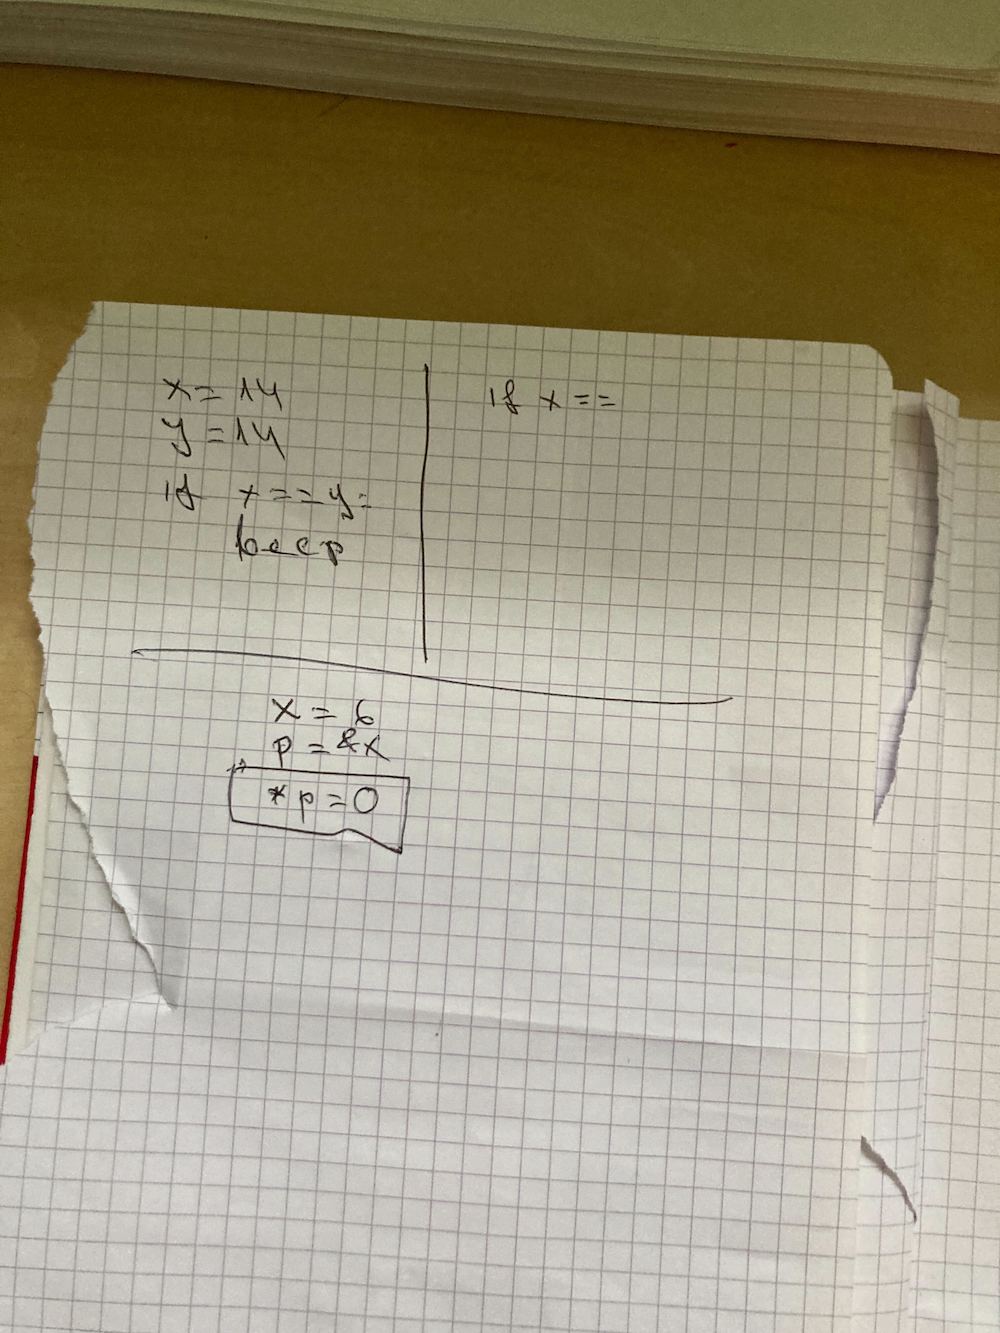 x = 14
y = 14
if x == y:
beep
if x ==
x = 6
p = &x
* p = 0